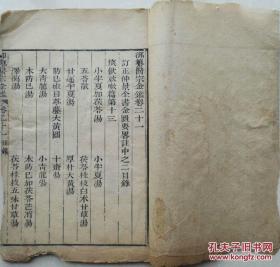 御纂醫宗金鑑卷二十一
訂正仲景全書金匱要略註中之二目錄
痰飲欬嗽篇第十三
小半夏加茯苓湯　小半夏湯
五苓散　茯苓桂枝白朮甘草湯
甘遂半夏湯　厚朴大黃湯
防己椒目葶藶大黃圓　十棗湯
大青龍湯　小青龍湯
木防己湯　木防己加茯苓芒硝湯
澤瀉湯　茯苓桂枝五味甘草湯